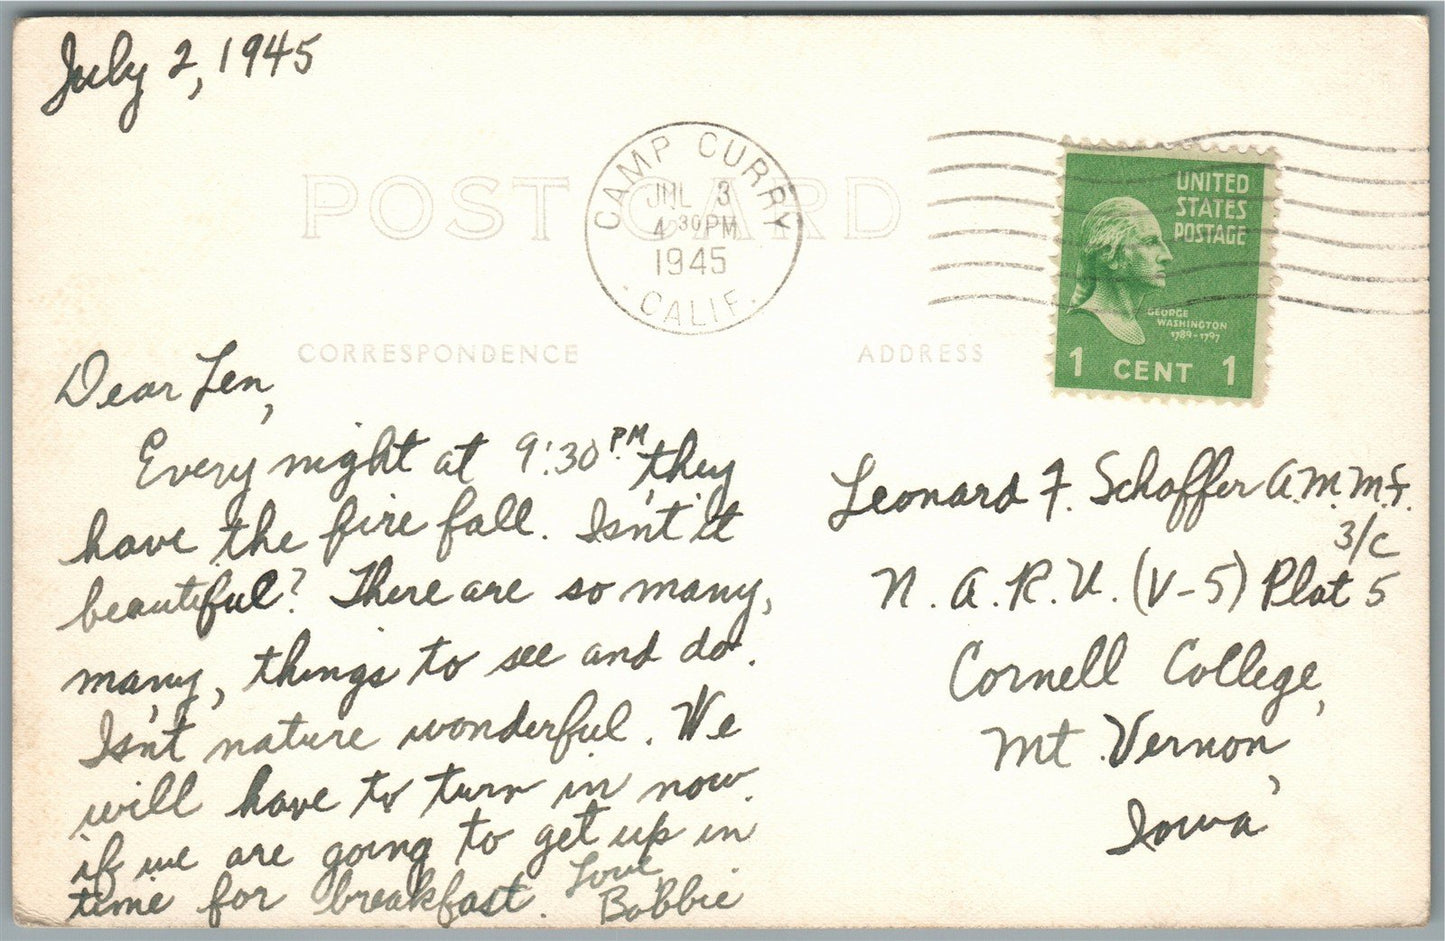 July 2, 1945
POST CARD
CAMP CURRY
JUL 3
4 30 PM
1945
CALIF.
UNITED
STATES
POSTAGE
GEORGE
WASHINGTON
1789-1797
1 CENT 1
CORRESPONDENCE
ADDRESS
Dear Len,
Every night at 9:30 P.M. they
have the fire fall. Isn't it
beautiful? There are so many,
many, things to see and do.
Isn't nature wonderful. We
will have to turn in now.
if we are going to get up in
time for breakfast. Love,
Bobbie
Leonard F. Schaffer A.M.M.F.
3/c
N.A.R.U. (V-5) Plat 5
Cornell College,
Mt. Vernon,
Iowa